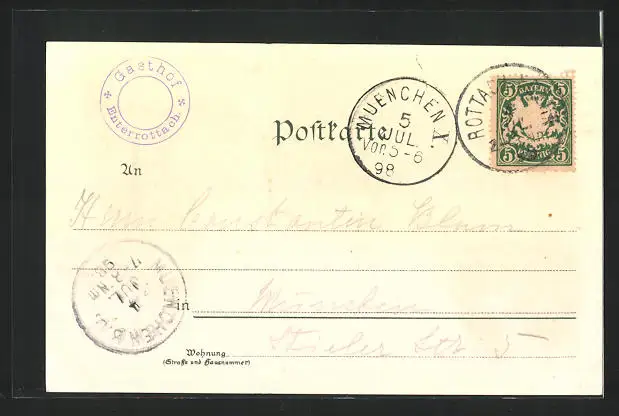 Gasthof
Enterrottach
Postkarte
MUENCHEN X.
5
JUL.
VOR. 5-6
98
ROTTA
BAYERN
5 5
5 PFENNIG 5
An
Herrn Constantin Blum
MUENCHEN
4
JUL
98
in München
Stieler Str. 5
Wohnung
(Straße und Hausnummer)